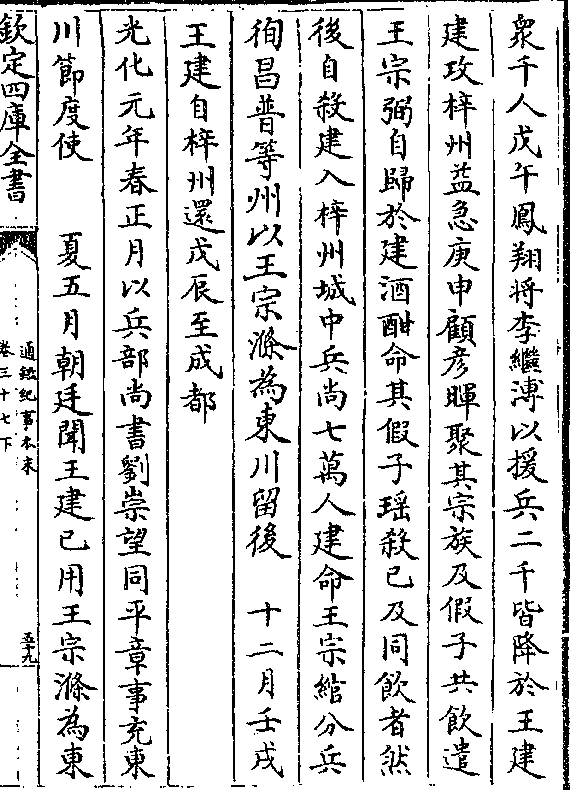 衆千人戊午鳳翔將李繼溥以援兵二千皆降於王建
建攻梓州益急庚申顧彥暉聚其宗族及假子共飲遣
王宗弼自歸於建酒酣命其假子瑶殺已及同飲者然
後自殺建入梓州城中兵尚七萬人建命王宗綰分兵
徇昌普等州以王宗滌為東川留後 十二月壬戌
王建自梓州還戊辰至成都
光化元年春正月以兵部尚書劉崇望同平章事充東
川節度使 夏五月朝廷聞王建已用王宗滌為東
欽定四庫全書
通鑑紀事本末
卷三十七下
五十九